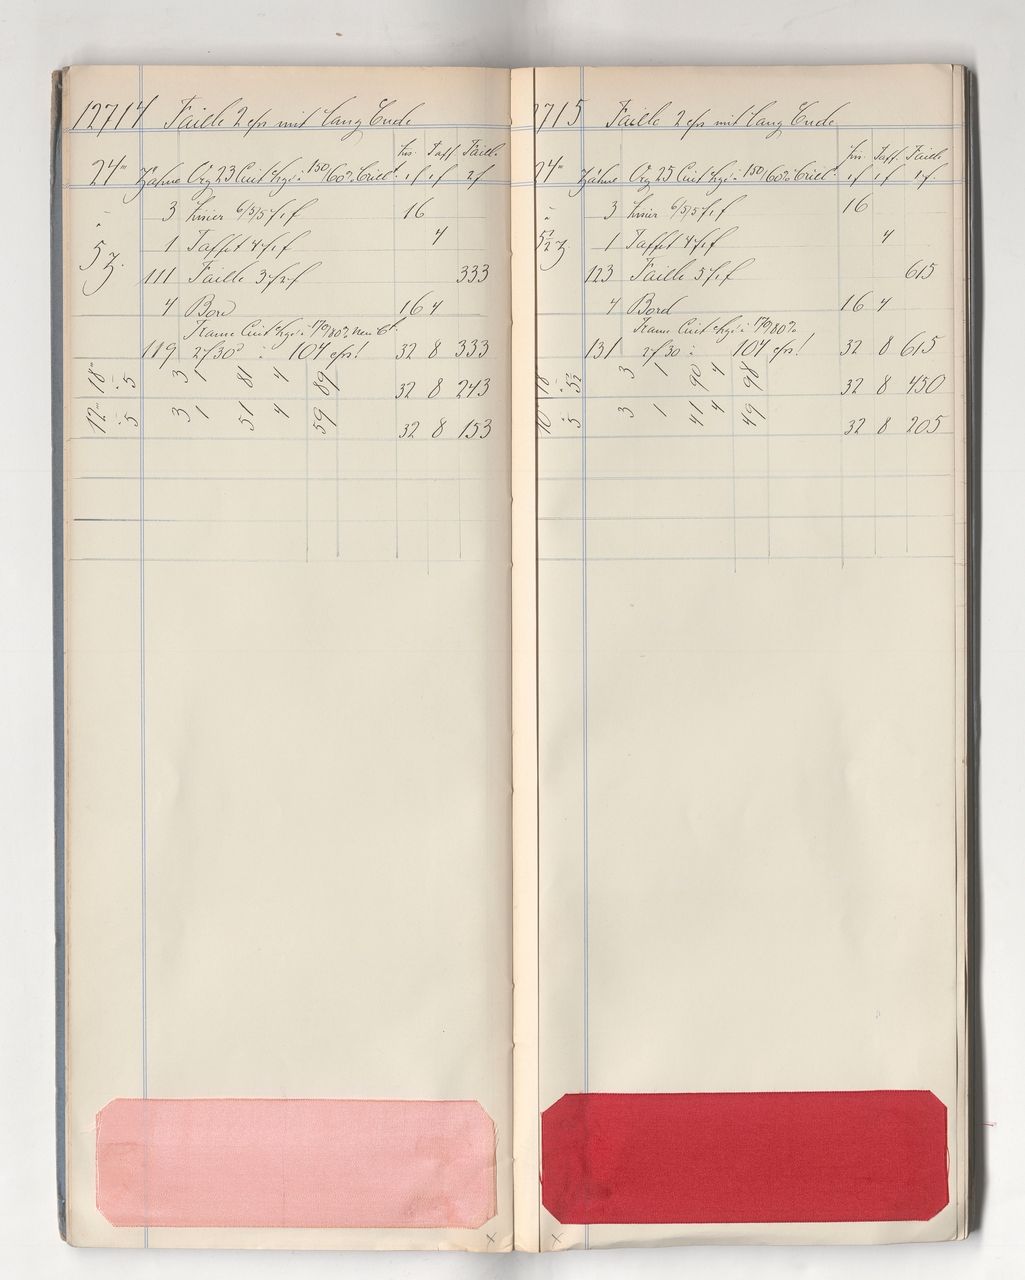 12714 Faille 2 chs mit lang Ende
Lis. Taff. Faille
24''' Zähne Org 23 Cuit 150/60
3 Lisier 6/5/5 f. 1 f 16
1 Taffet 4 f. 1 f 4
5 z.
111 Faille 3 f. 2 f 333
4 Bord 16 4
Trame Cuit 70/80
119 2 f 30 : 104 chs! 32 8 333
18''' : 5 3 1 81 4 89 32 8 243
12''' : 5 3 1 51 4 59 32 8 153
×
2715 Faille 2 chs mit lang Ende
Lis. Taff. Faille
24''' Zähne Org 25 Cuit 150/60
3 Lisier 6/5/5 f. 1 f 16
1 Taffet 4 f. 1 f 4
5 1/2 z.
123 Faille 5 f. 1 f 615
4 Bord 16 4
Trame Cuit 70/80 %
131 2 f 30 : 104 chs! 32 8 615
18 : 5 1/2 3 1 90 4 98 32 8 450
10''' : 5 3 1 41 4 49 32 8 205
×